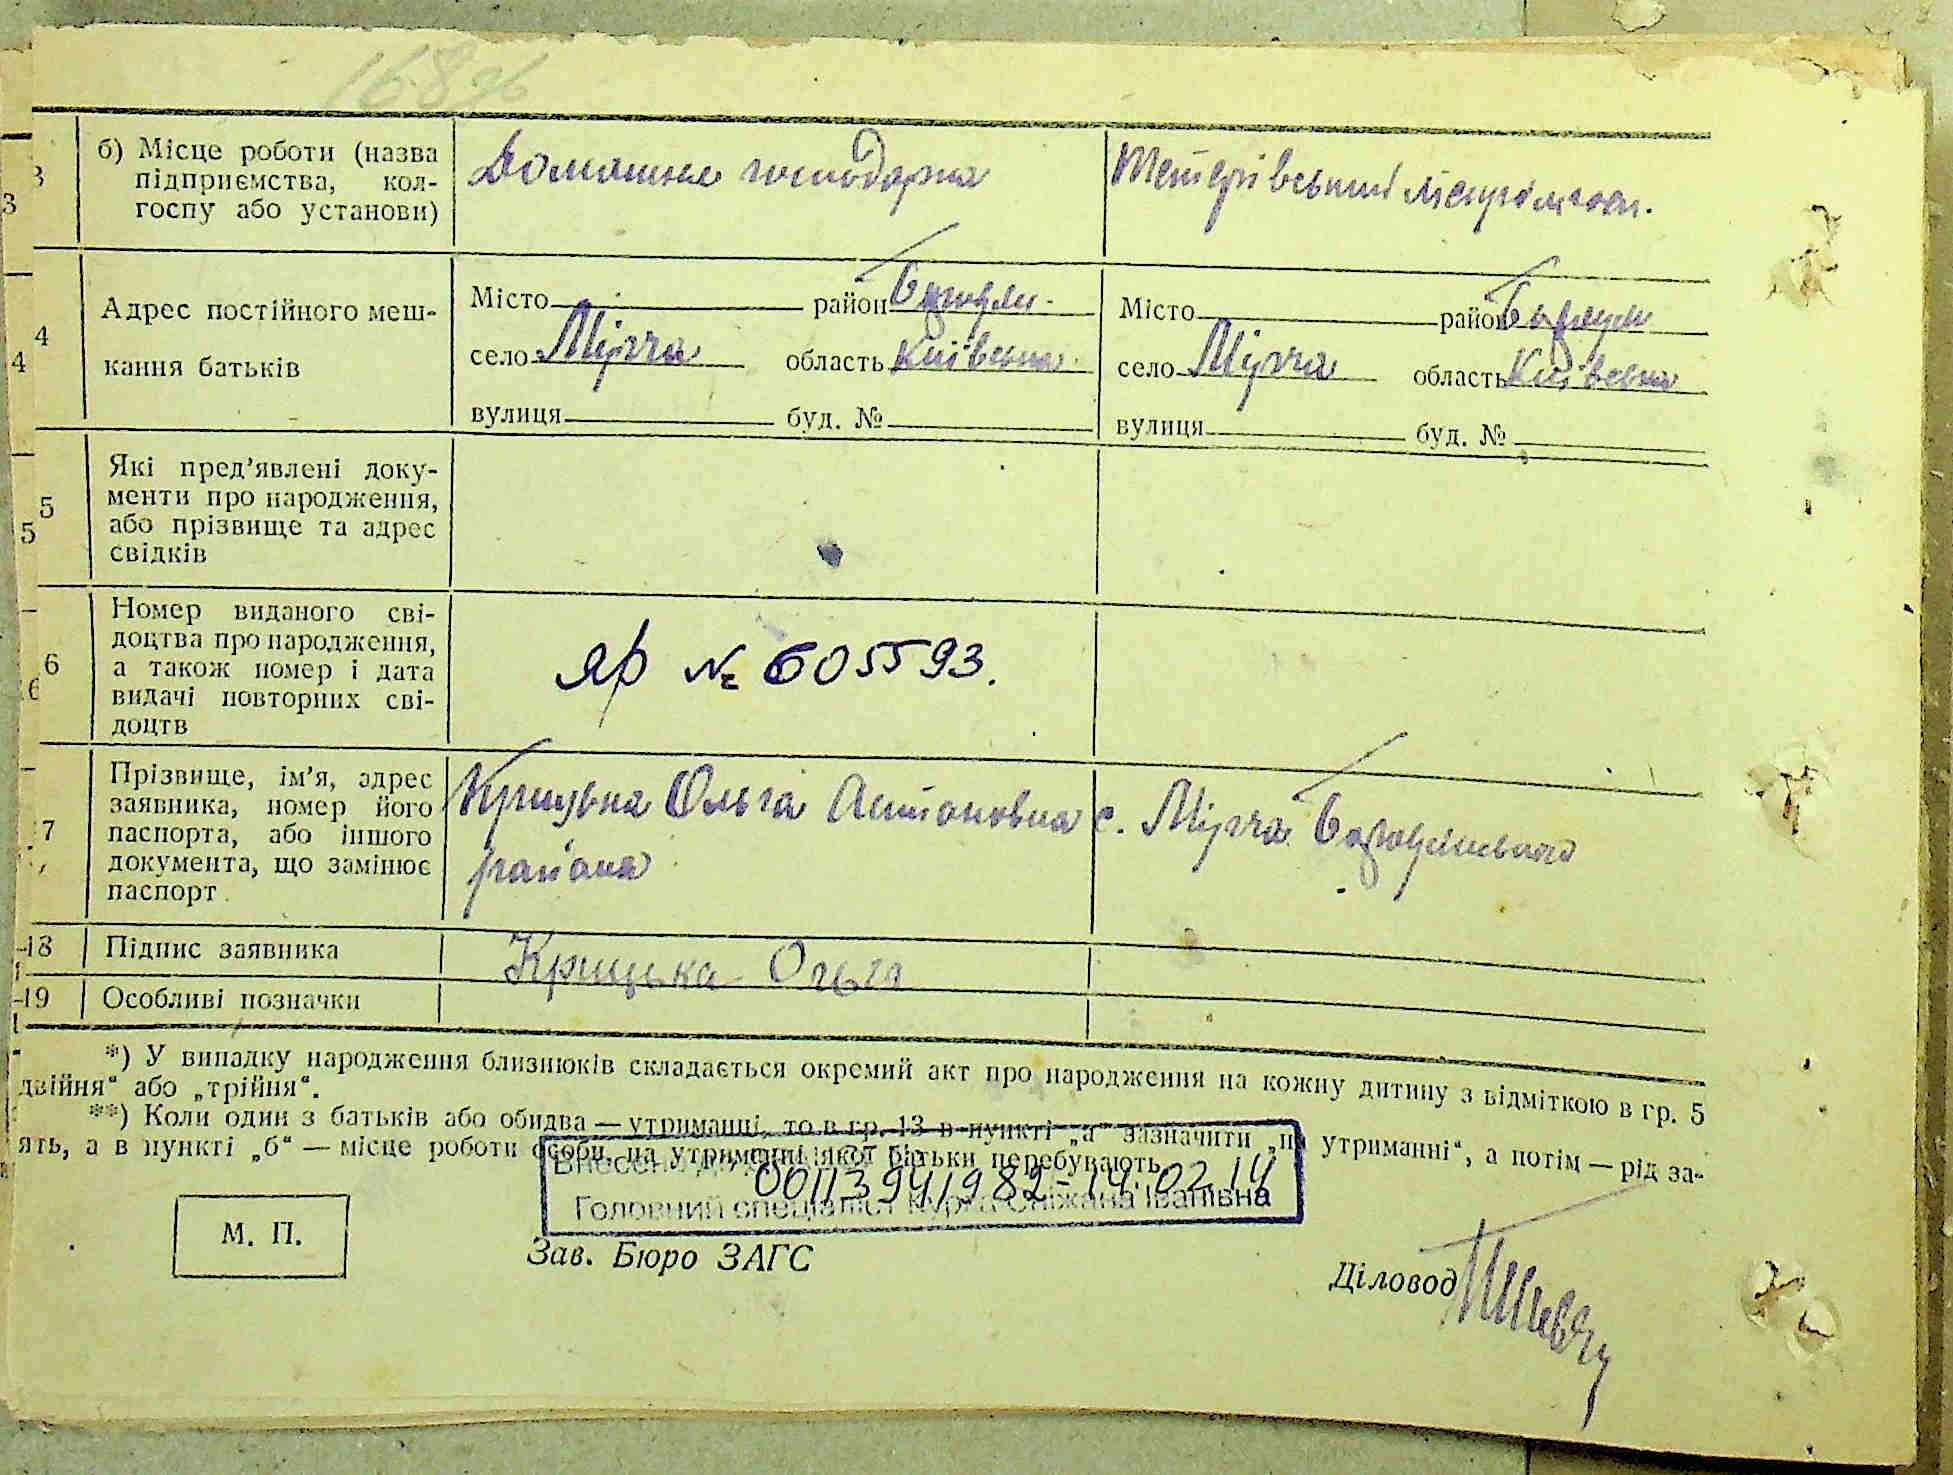 168 зв
3
б) Місце роботи (назва
підприємства, кол-
госпу або установи)
Домашня господарка
Тетерівський ліспромгосп.
4
Адрес постійного меш-
кання батьків
Місто район
село Мірча область Київська
вулиця буд. №
Місто район
село Мірча область Київська
вулиця буд. №
5
Які пред’явлені доку-
менти про народження,
або прізвище та адрес
свідків
6
Номер виданого сві-
доцтва про народження,
а також номер і дата
видачі повторних сві-
доцтв
ЯР № 605593.
7
Прізвище, ім’я, адрес
заявника, номер його
паспорта, або іншого
документа, що замінює
паспорт
Крицька Ольга Антоновна с. Мірча Бородянського
района
18 Підпис заявника
Крицька Ольга
19 Особливі позначки
*) У випадку народження близнюків складається окремий акт про народження на кожну дитину з відміткою в гр. 5
двійня“ або „трійня“.
**) Коли один з батьків або обидва — утриманці, то в гр. 13 в пункті „а“ зазначити „на утриманні“, а потім — рід за-
ять, а в пункті „б“ — місце роботи особи, на утриманні якої батьки перебувають.
Внесено до
00113941982 - 14.02.14
Головний спеціаліст Сніжана Іванівна
М. П.
Зав. Бюро ЗАГС
Діловод